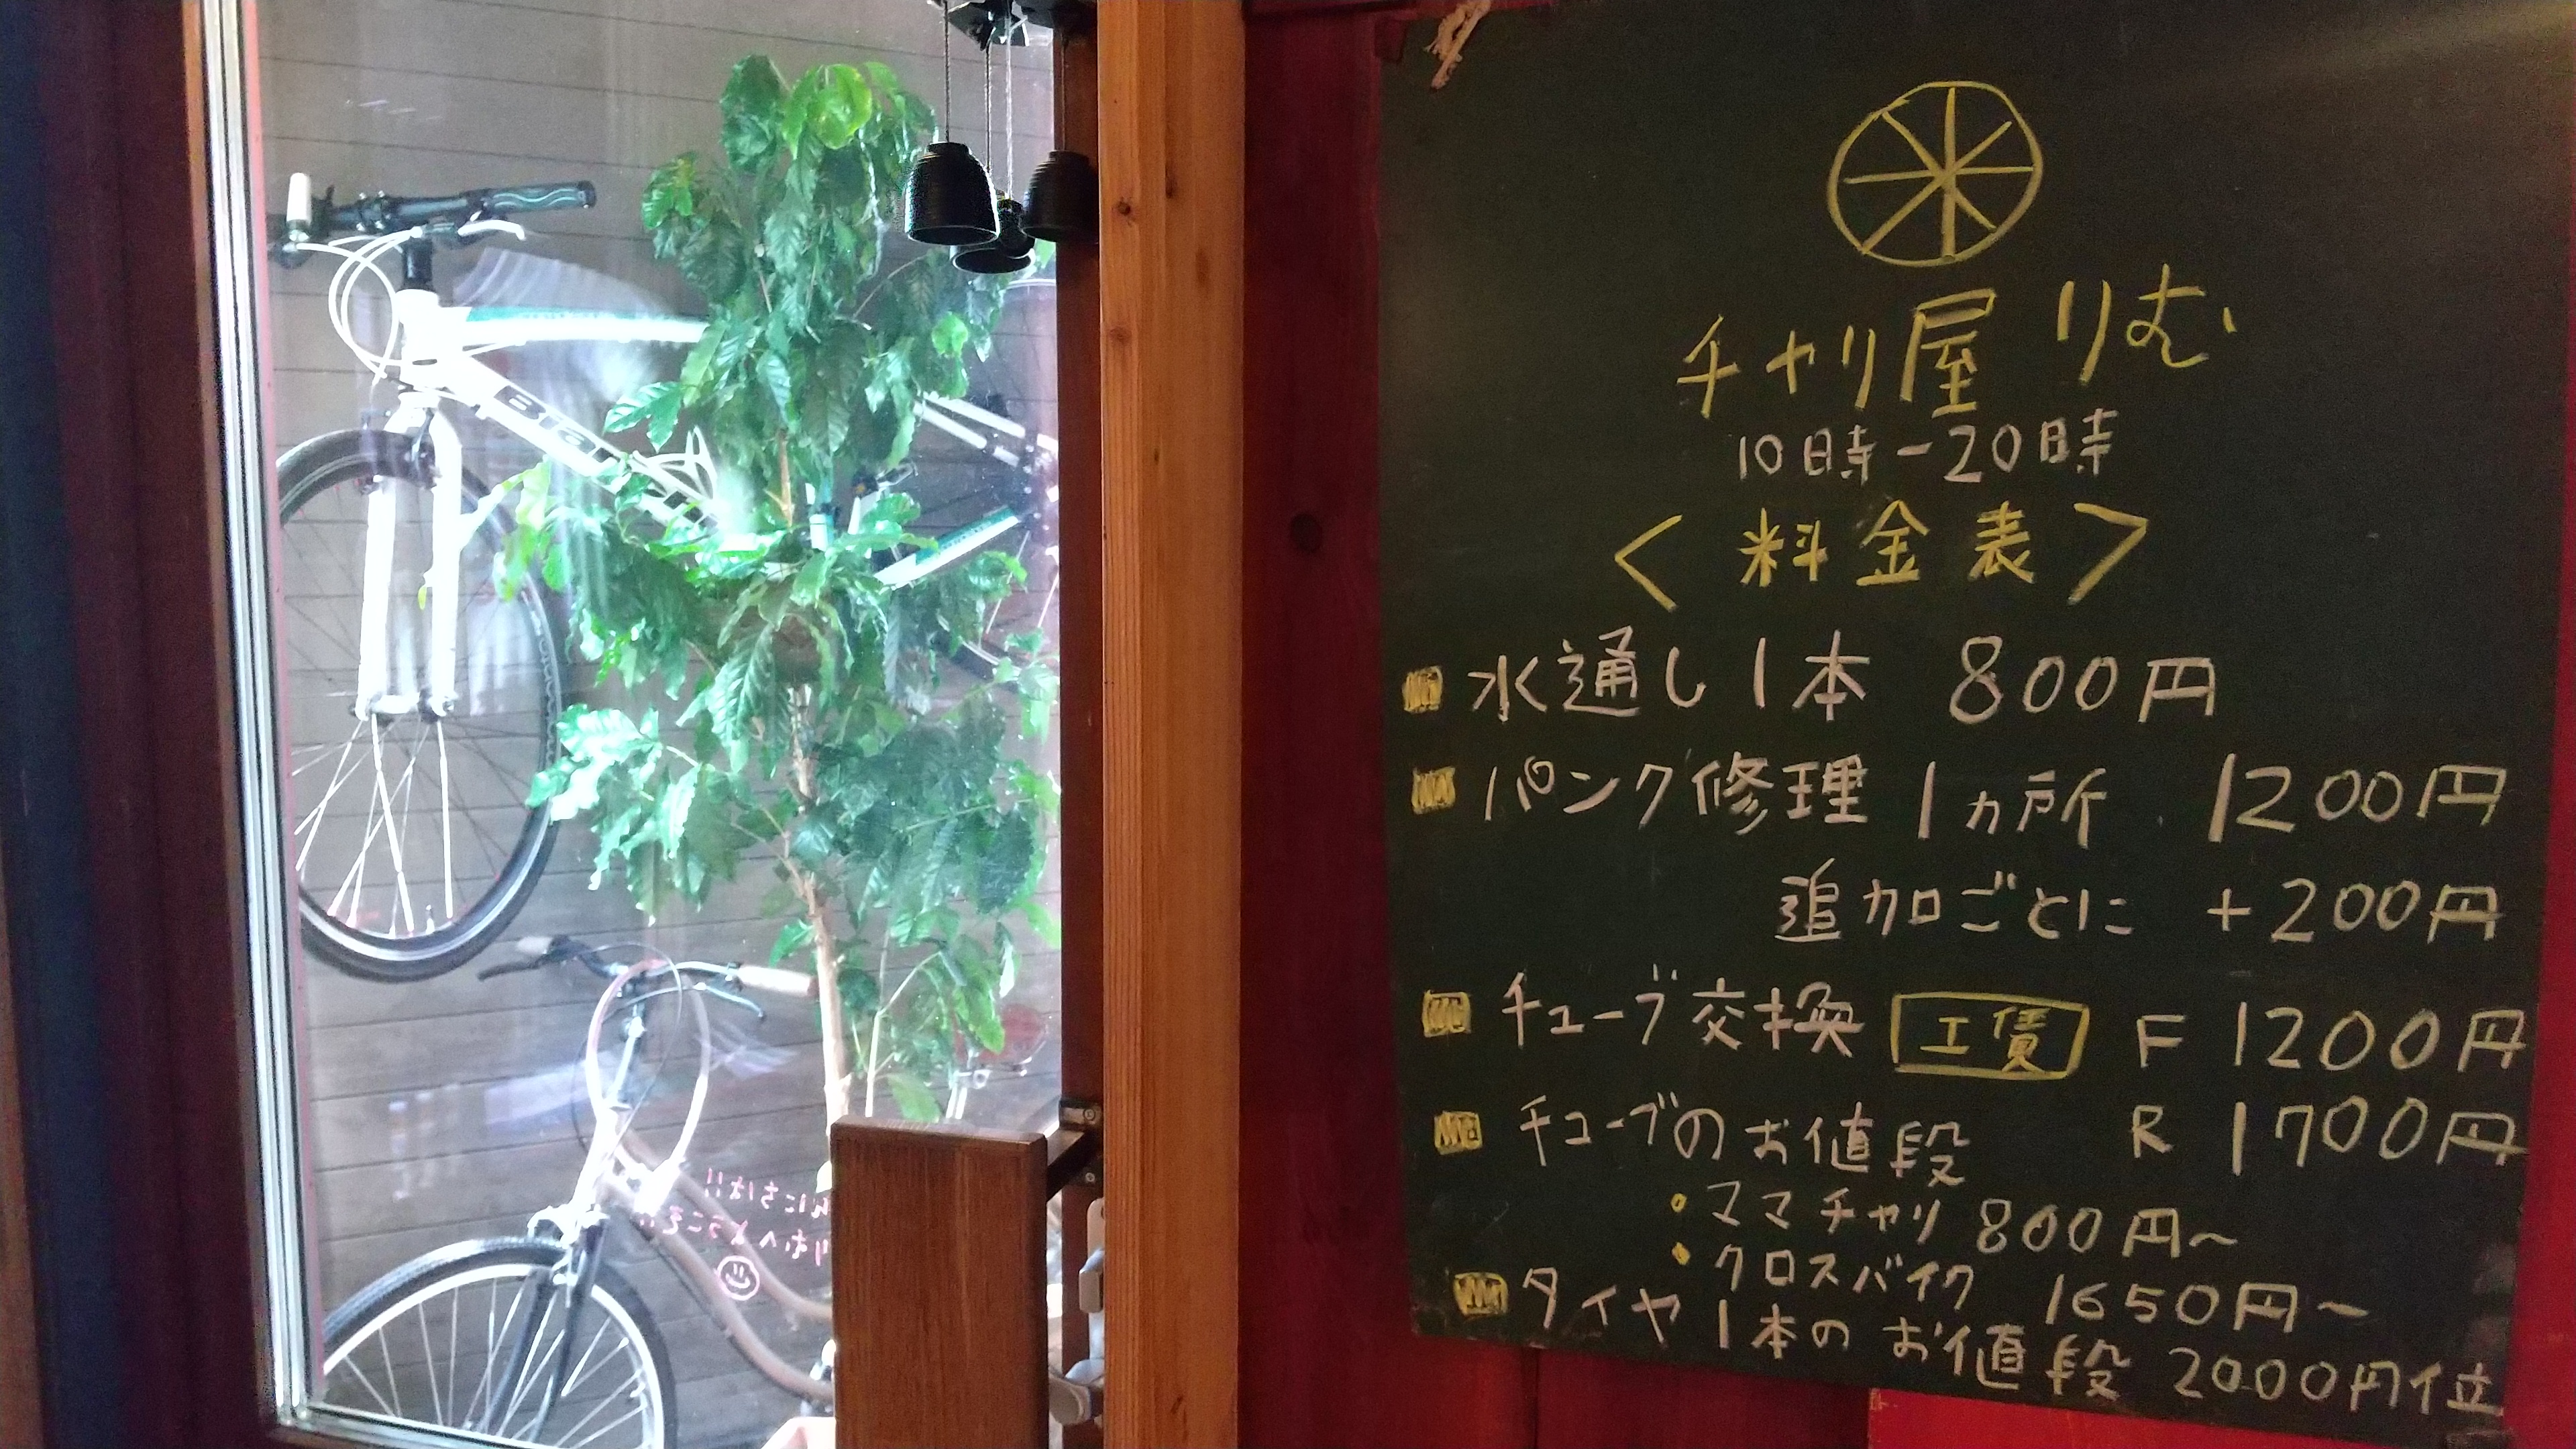 チャリ屋 りむ
10時-20時
<料金表>
水通し1本 800円
パンク修理 1ヵ所 1200円
追加ごとに +200円
チューブ交換 工賃 F 1200円
R 1700円
チューブのお値段
・ママチャリ 800円~
・クロスバイク 1650円~
タイヤ1本のお値段 2000円位
んにちは!!
りむへようこそ!!